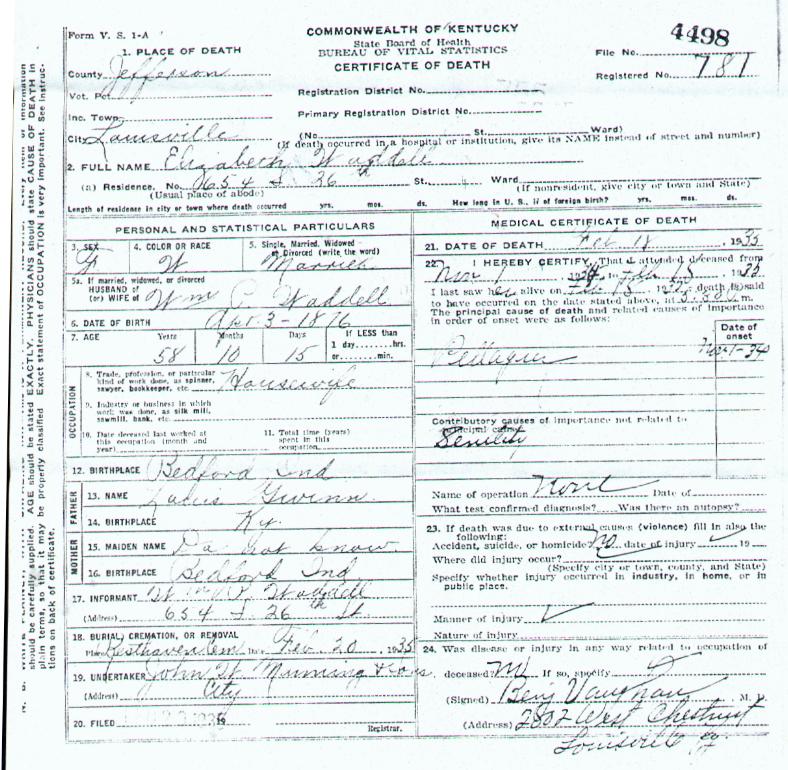 Form V. S. 1-A
COMMONWEALTH OF KENTUCKY
State Board of Health
BUREAU OF VITAL STATISTICS
CERTIFICATE OF DEATH
4498
File No.
Registered No. 781
1. PLACE OF DEATH
County Jefferson
Vot. Pct.
Inc. Town
City Louisville
Registration District No.
Primary Registration District No.
(No. St. Ward)
(If death occurred in a hospital or institution, give its NAME instead of street and number)
2. FULL NAME Elizabeth Waddell
(a) Residence. No. 654 S 26th St., Ward
(Usual place of abode) (If nonresident, give city or town and State)
Length of residence in city or town where death occurred yrs. mos. ds. How long in U. S., if of foreign birth? yrs. mos. ds.
PERSONAL AND STATISTICAL PARTICULARS
3. SEX F
4. COLOR OR RACE W
5. Single, Married, Widowed or Divorced (write the word) Married
5a. If married, widowed, or divorced
HUSBAND of
(or) WIFE of Wm P. Waddell
6. DATE OF BIRTH Apr. 3 - 1876
7. AGE Years 58 Months 10 Days 15 If LESS than 1 day hrs. or min.
OCCUPATION
8. Trade, profession, or particular kind of work done, as spinner, sawyer, bookkeeper, etc. Housewife
9. Industry or business in which work was done, as silk mill, sawmill, bank, etc.
10. Date deceased last worked at this occupation (month and year)
11. Total time (years) spent in this occupation
12. BIRTHPLACE Bedford Ind
FATHER
13. NAME Gwinn
14. BIRTHPLACE Ky.
MOTHER
15. MAIDEN NAME Do not know
16. BIRTHPLACE Bedford Ind
17. INFORMANT Wm P. Waddell
(Address) 654 S. 26th St
18. BURIAL, CREMATION, OR REMOVAL
Place Resthaven Cem Date Feb. 20, 1935
19. UNDERTAKER John W Manning & Sons
(Address) City
20. FILED 19
Registrar.
MEDICAL CERTIFICATE OF DEATH
21. DATE OF DEATH Feb. 18, 1935
22. I HEREBY CERTIFY, That I attended deceased from
Nov 1, 1934 to Feb 18, 1935
I last saw her alive on Feb 18, death is said
to have occurred on the date stated above, at m.
The principal cause of death and related causes of importance in order of onset were as follows:
Date of onset
Pellagra Nov-1-34
Contributory causes of importance not related to principal cause:
Senility
Name of operation None Date of
What test confirmed diagnosis? Was there an autopsy?
23. If death was due to external causes (violence) fill in also the following:
Accident, suicide, or homicide? No date of injury 19
Where did injury occur?
(Specify city or town, county, and State)
Specify whether injury occurred in industry, in home, or in public place.
Manner of injury
Nature of injury
24. Was disease or injury in any way related to occupation of
deceased? No If so, specify
(Signed) Benj Vaughan M. D.
(Address) 2802 West Chestnut
Louisville Ky
should be carefully supplied. AGE should be stated EXACTLY. PHYSICIANS should state CAUSE OF DEATH in
plain terms, so that it may be properly classified. Exact statement of OCCUPATION is very important. See instruc-
tions on back of certificate.